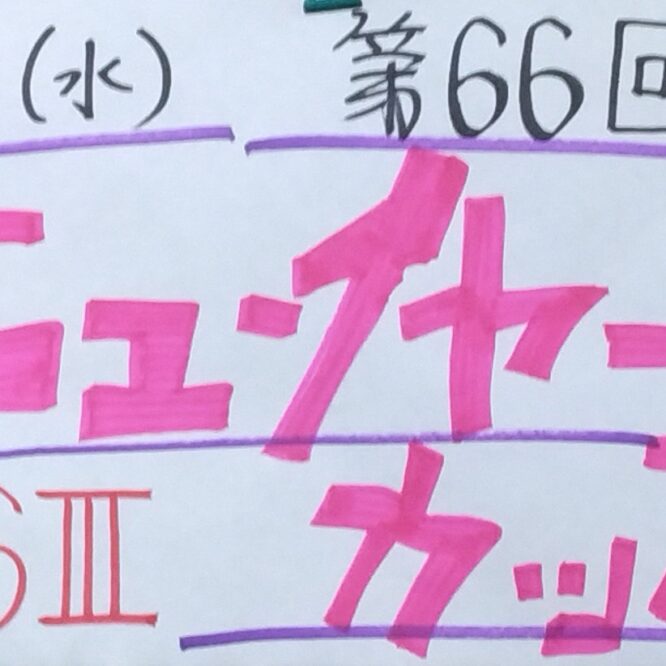 (水) 第66回
ニューイヤー
SIII カップ